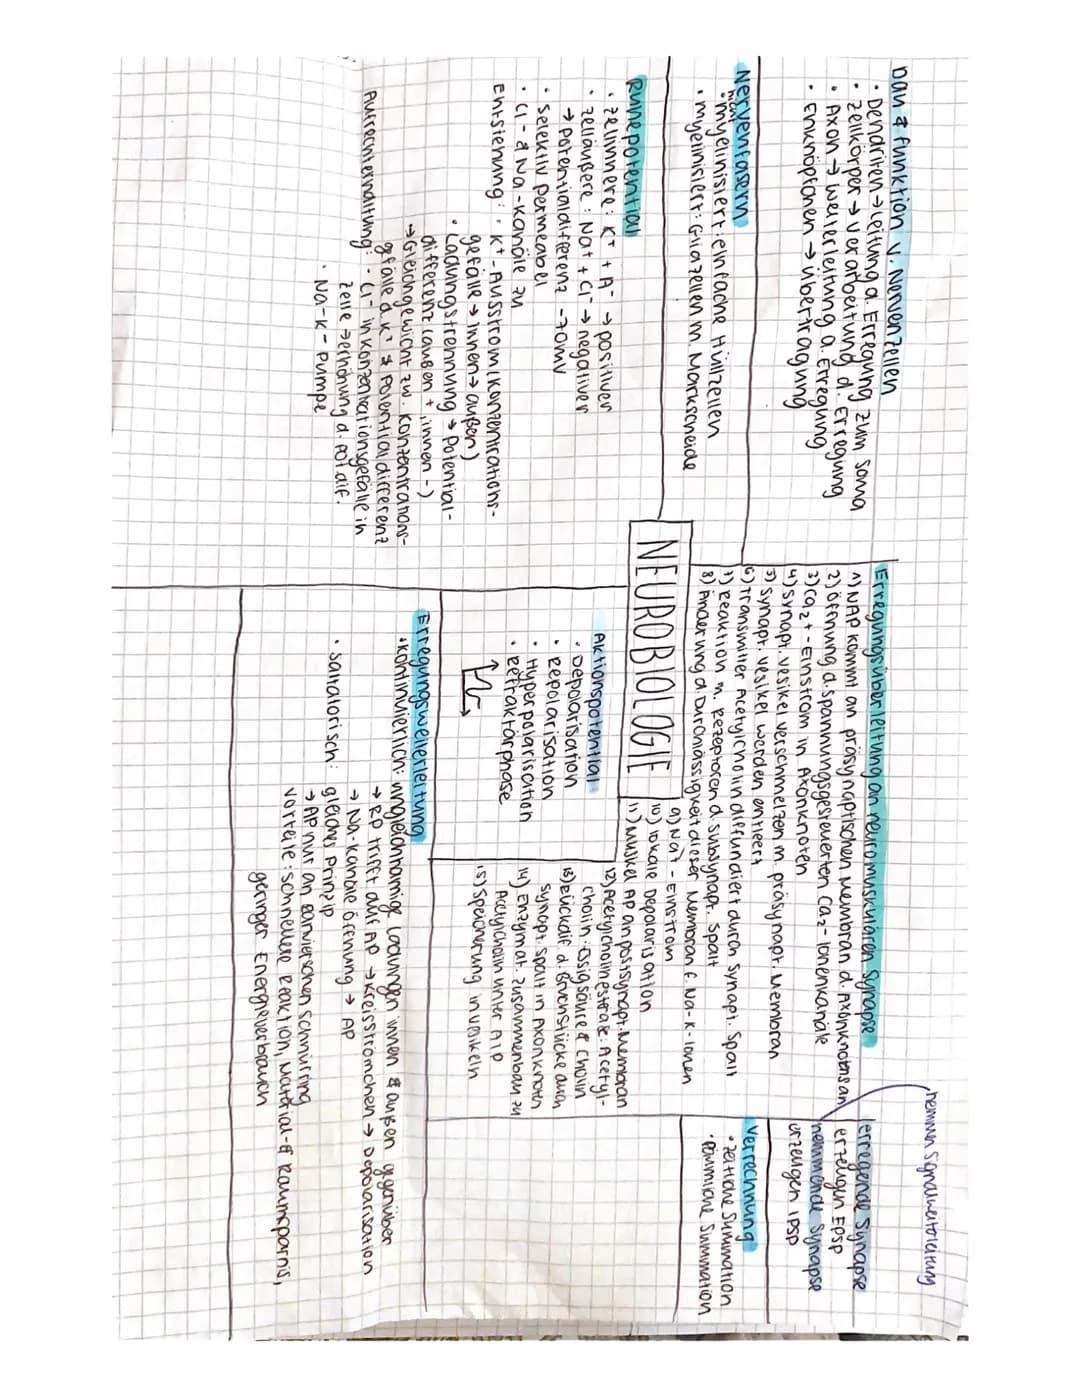 Bau & funktion v. Nervenzellen
• Dendriten → Leitung d. Erregung zum Soma
• Zellkörper → Verarbeitung d. Erregung
• Axon → Weiterleitung d. Erregung
• Endknöpfchen → Übertragung
Nervenfasern
nicht
• myelinisiert: einfache Hüllzellen
• myelinisiert: Gliazellen m. Markscheide
Ruhepotential
• Zellinnere: K+ + A- → positiver
• Zelläußere: Na+ + Cl- → negativer
→ Potentialdifferenz -70mV
• selektiv permeabel
• Cl- & Na-Kanäle zu
Entstehung: • K+-Ausstrom (Konzentrations-
gefälle → innen → außen)
• Ladungstrennung → Potential-
differenz (außen +, innen -)
→ Gleichgewicht zw. Konzentrations-
gefälle d. K+ & Potentialdifferenz
Aufrechterhaltung: • Cl- in Konzentrationsgefälle in
Zelle → Erhöhung d. Pot.dif.
• Na-K-Pumpe
NEUROBIOLOGIE
Erregungsüberleitung an neuromuskulären Synapse
1) NAP kommt an präsynaptischen Membran d. Axonknotens an
2) Öffnung d. spannungsgesteuerten Ca2-Ionenkanäle
3) Ca2+-Einstrom in Axonknoten
4) synapt. Vesikel verschmelzen m. präsynapt. Membran
5) synapt. Vesikel werden entleert
6) Transmitter Acetylcholin diffundiert durch synapt. Spalt
7) Reaktion m. Rezeptoren d. subsynapt. Spalt
8) Änderung d. Durchlässigkeit dieser Membran f. Na-K-Ionen
9) Na+-Einstrom
10) lokale Depolarisation
11) Muskel AP an postsynapt. Membran
12) Acetylcholinestrase: Acetyl-
cholin: Essigsäure & Cholin
13) Rückdif. d. Bruchstücke durch
synapt. Spalt in Axonknoten
14) Enzymat. Zusammenbau zu
Acetylcholin unter ATP
15) Speicherung in Vesikeln
hemmen Signalweiterleitung
erregende Synapse
erzeugen EPSP
hemmende Synapse
erzeugen IPSP
Verrechnung
• zeitliche Summation
• räumliche Summation
Aktionspotential
• Depolarisation
• Repolarisation
• Hyperpolarisation
• Refraktärphase
Erregungsweiterleitung
• kontinuierlich: ungleichnamige Ladungen innen & außen gegenüber
→ RP trifft auf AP → Kreisströmchen → Depolarisation
→ Na-Kanäle öffnung → AP
• saltatorisch: gleiches Prinzip
→ AP nur an Ranvierschen Schnürring
Vorteile: schnellere Reaktion, Material- & Raumsparnis,
geringer Energieverbrauch